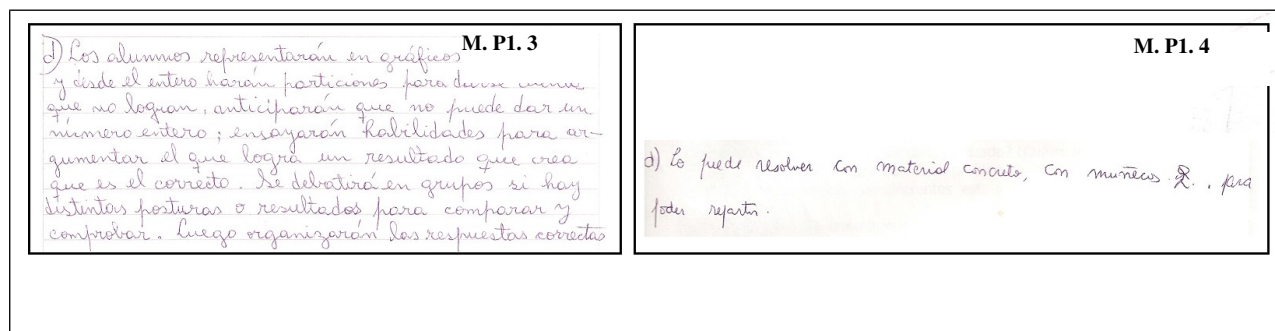 M. P1. 3
d) Los alumnos representarán en gráficos
y desde el entero harán particiones para
que no logran, anticiparán que no puede dar un
número entero; ensayarán habilidades para ar-
gumentar el que logra un resultado que crea
que es el correcto. Se debatirá en grupos si hay
distintas posturas o resultados para comparar y
comprobar. Luego organizarán las respuestas correctas
M. P1. 4
d) Lo puede resolver con material concreto, con muñecos, para
poder repartir.